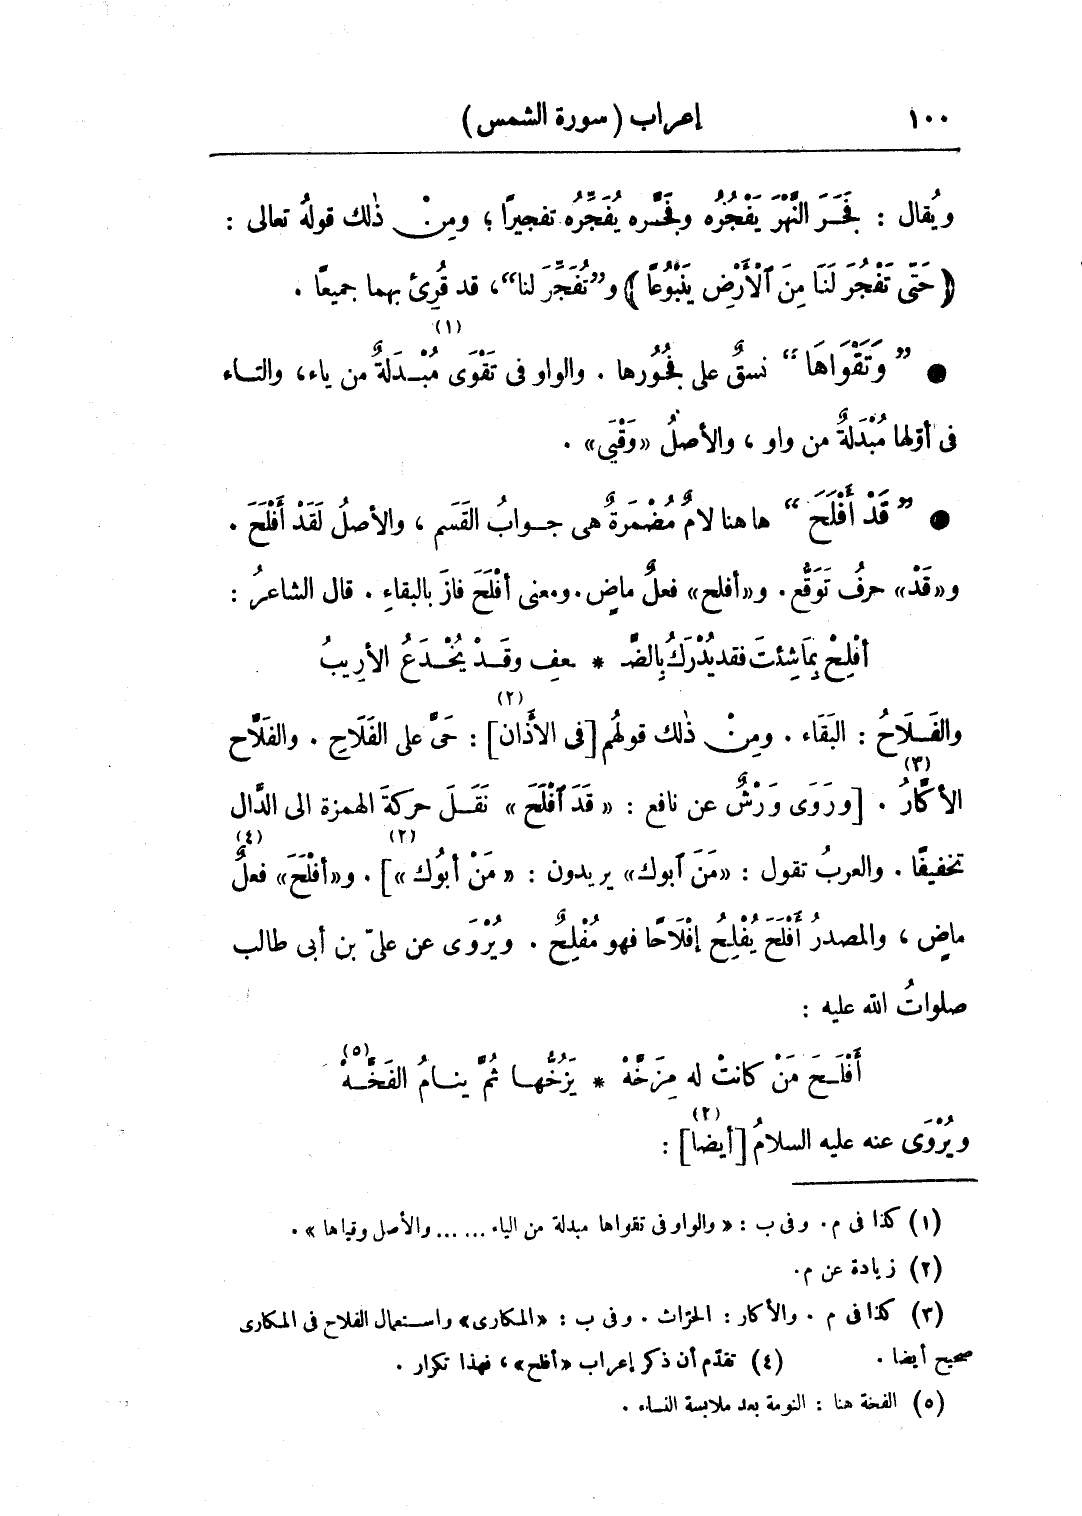 ١٠٠ إعراب (سورة الشمس)
ويُقال : فَجَرَ النَّهْرَ يَفْجُرُه وفَجَّره يُفَجِّرُه تفجيرًا ؛ ومِنْ ذٰلك قولهُ تعالى :
﴿ حَتَّى تَفْجُرَ لَنَا مِنَ ٱلْأَرْضِ يَنْبُوعًا ﴾ و”تُفَجِّرَ لنا“، قد قُرِئ بهما جميعًا .
● ” وَتَقْوَاهَا “ نسقٌ على بُخُورها . والواو فى تَقْوَى مُبْدَلةٌ (١) من ياء، والتاء
فى أوّلها مُبْدَلةٌ من واو ، والأصلُ «وَقْيَى» .
● ” قَدْ أَفْلَحَ “ هاهنا لامٌ مُضْمَرةٌ هى جوابُ القَسَم ، والأصلُ لَقَدْ أَفْلَحَ .
و«قَدْ» حرفُ تَوَقُّع . و«أفلح» فعلٌ ماضٍ . ومعنى أَفْلَحَ فازَ بالبقاءِ . قال الشاعرُ :
أَفْلِحْ بِمَا شِئتَ فقد يُدْرَكُ بِالضَّـ * ـعفِ وقَدْ يُخْدَعُ الأرِيبُ
والفَلَاحُ : البَقَاء . ومِنْ ذٰلك قولهُم [فى الأَذَان] (٢) : حَىَّ على الفَلَاحِ . والفَلَّاح
الأَكَّارُ (٣) . [ورَوَى وَرْشٌ عن نافع : « قَدَ ٱفْلَحَ » نَقَلَ حركةَ الهمزة الى الدَّال
تخفيفًا . والعربُ تقول : «مَنَ ٱبوك» يريدون : « مَنْ أبُوك »] (٢) . و«أَفْلَحَ» فعلٌ (٤)
ماضٍ ، والمصدرُ أَفْلَحَ يُفْلِحُ إفْلَاحًا فهو مُفْلِحٌ . ويُرْوَى عن علىّ بن أبى طالب
صلواتُ الله عليه :
أَفْلَحَ مَنْ كانتْ له مِزَخَّهْ * يَزُخُّها ثُمَّ ينامُ الفَخَّهْ (٥)
ويُرْوَى عنه عليه السلامُ [أيضا] (٢) :
(١) كذا فى م . وفى ب : « والواو فى تقواها مبدلة من الياء ...... والأصل وقياها » .
(٢) زيادة عن م .
(٣) كذا فى م . والأكار : الحرّاث . وفى ب : «المكارى» واستعمال الفلاح فى المكارى
صحيح أيضا . (٤) تقدّم أن ذكر إعراب «أفلح» ، فهذا تكرار .
(٥) الفخة هنا : النومة بعد ملابسة النساء .